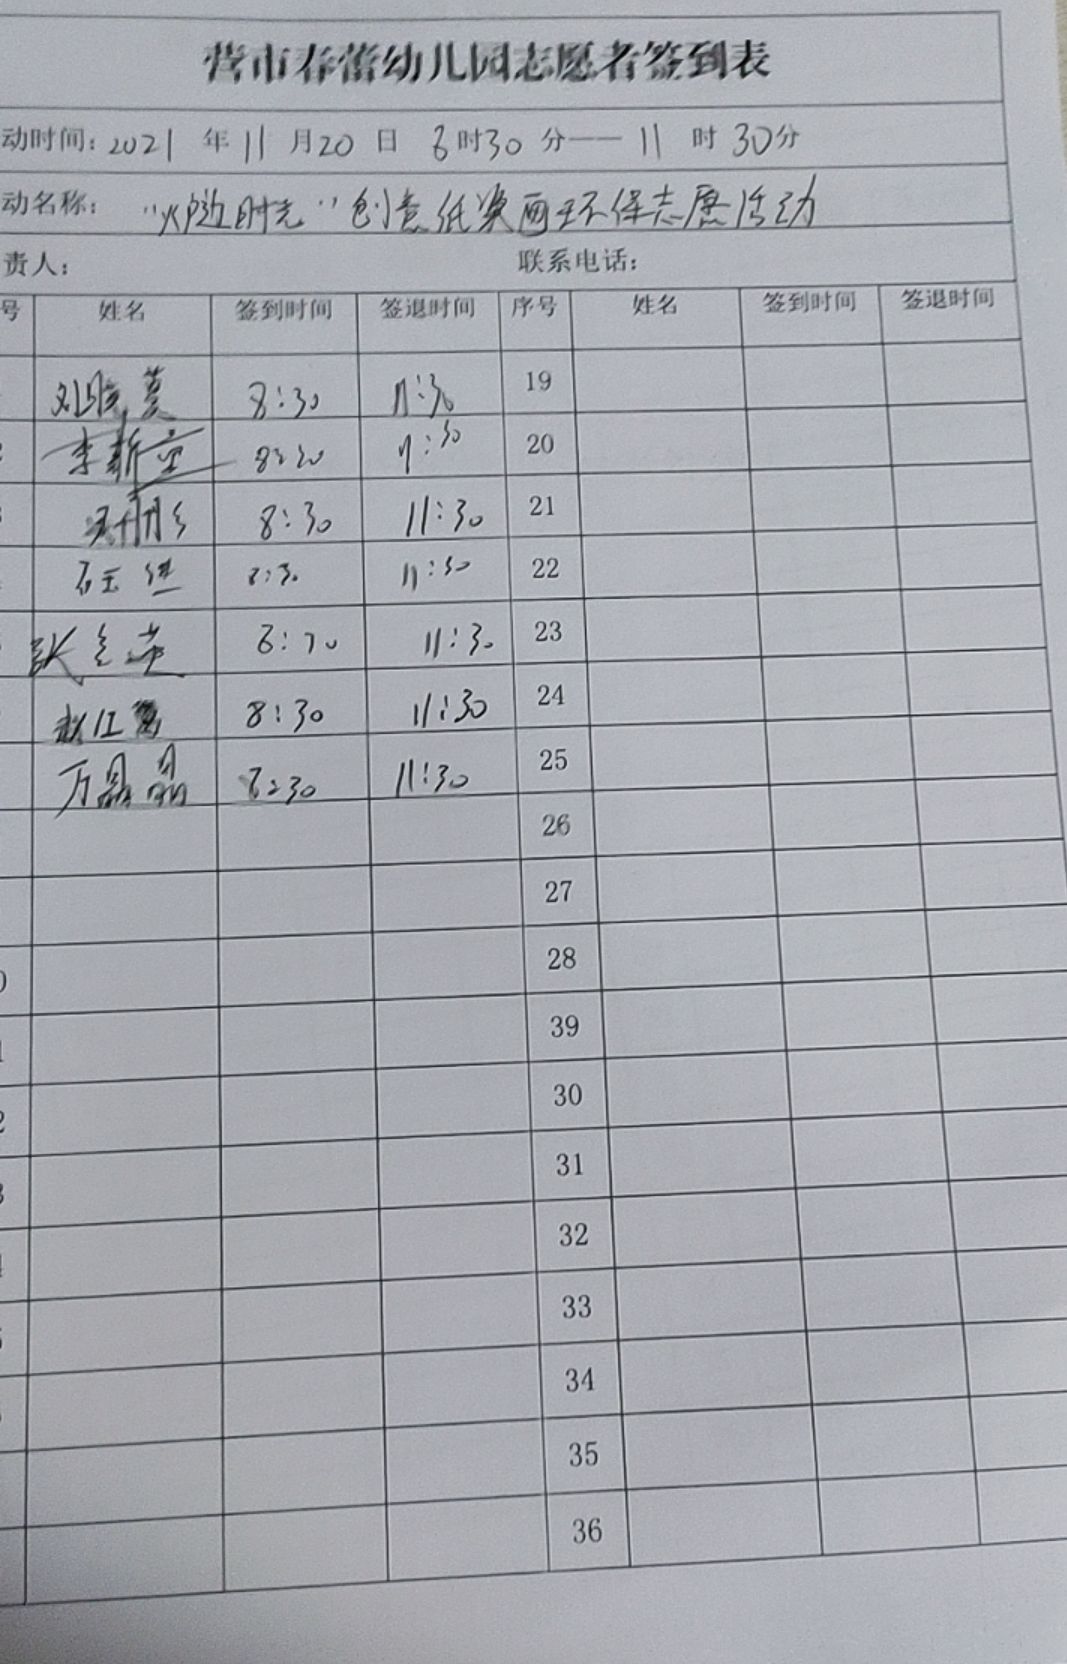 营市春蕾幼儿园志愿者签到表
动时间：2021 年 11 月 20 日 8时30 分—— 11 时 30分
动名称： “炉边时光”创意纸浆画环保志愿活动
责人： 联系电话：
号 姓名 签到时间 签退时间 序号 姓名 签到时间 签退时间
8:30 11:30 19
李新 8:30 11:30 20
8:30 11:30 21
8:30 11:30 22
张 8:30 11:30 23
赵江 8:30 11:30 24
万晶晶 8:30 11:30 25
26
27
28
39
30
31
32
33
34
35
36